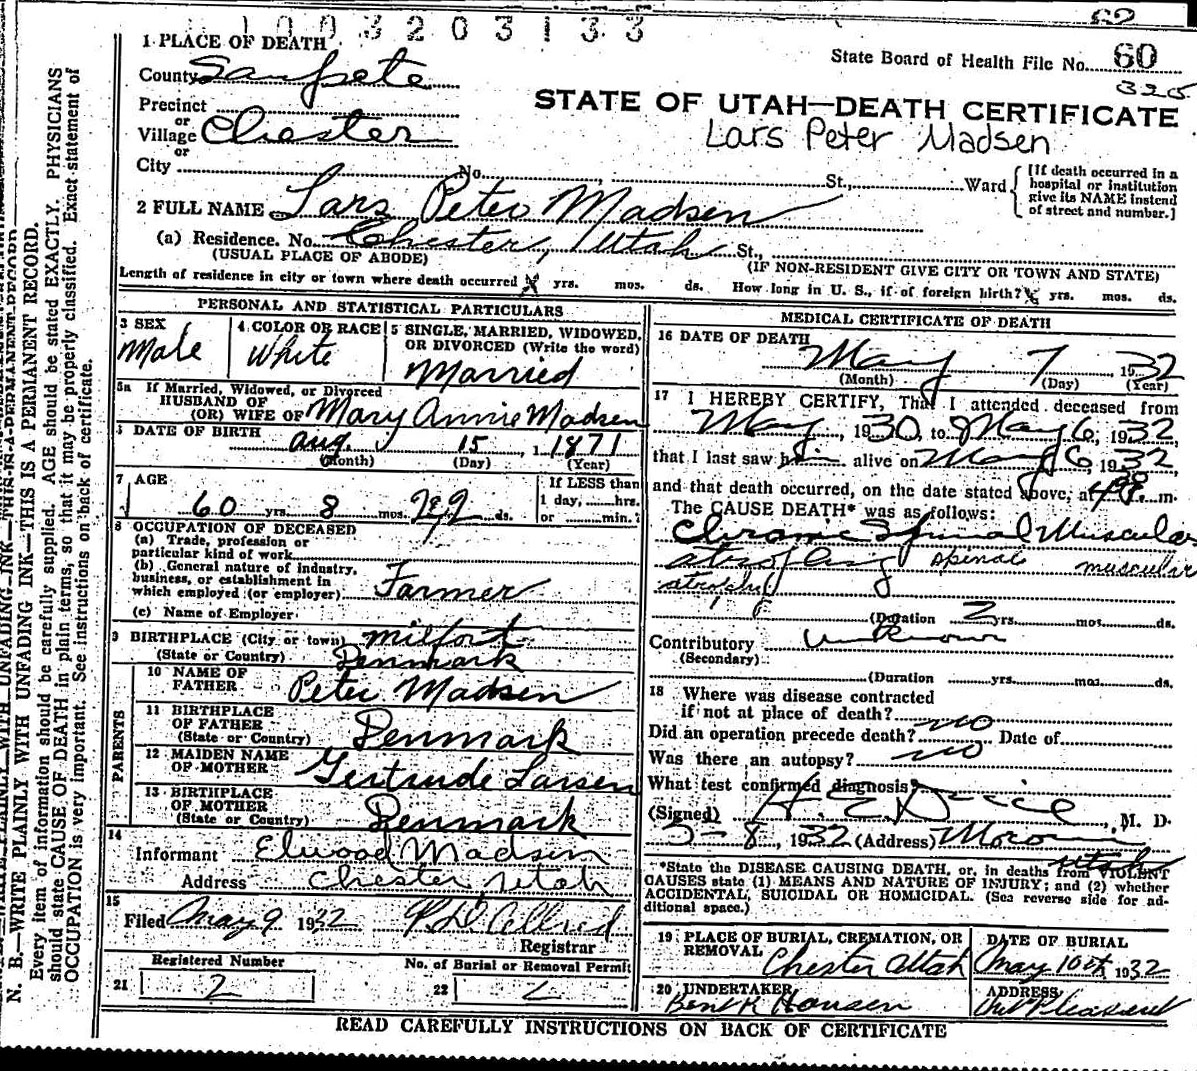 1003203133
62
1 PLACE OF DEATH
State Board of Health File No. 60
325
County Sanpete
STATE OF UTAH—DEATH CERTIFICATE
Precinct
or
Village Chester
Lars Peter Madsen
or
City No. St., Ward
[If death occurred in a
hospital or institution
give its NAME instead
of street and number.]
2 FULL NAME Lars Peter Madsen
(a) Residence. No. Chester, Utah St.,
(USUAL PLACE OF ABODE) (IF NON-RESIDENT GIVE CITY OR TOWN AND STATE)
Length of residence in city or town where death occurred yrs. mos. ds. How long in U. S., if of foreign birth? yrs. mos. ds.
PERSONAL AND STATISTICAL PARTICULARS
3 SEX
Male
4 COLOR OR RACE
White
5 SINGLE, MARRIED, WIDOWED,
OR DIVORCED (Write the word)
Married
5a If Married, Widowed, or Divorced
HUSBAND OF
(OR) WIFE OF Mary Annie Madsen
DATE OF BIRTH Aug 15, 1871
(Month) (Day) (Year)
7 AGE
60 yrs. 8 mos. ds.
If LESS than
1 day, hrs.
or min.?
8 OCCUPATION OF DECEASED
(a) Trade, profession or
particular kind of work
(b) General nature of industry,
business, or establishment in
which employed (or employer) Farmer
(c) Name of Employer
9 BIRTHPLACE (City or town) Milfort
(State or Country) Denmark
PARENTS
10 NAME OF
FATHER Peter Madsen
11 BIRTHPLACE
OF FATHER
(State or Country) Denmark
12 MAIDEN NAME
OF MOTHER Gertrude Larsen
13 BIRTHPLACE
OF MOTHER
(State or Country) Denmark
14
Informant Elwood Madsen
Address Chester, Utah
15
Filed May 9 1932
Registrar
Registered Number
21 2
No. of Burial or Removal Permit
22 2
MEDICAL CERTIFICATE OF DEATH
16 DATE OF DEATH
May 7 1932
(Month) (Day) (Year)
17 I HEREBY CERTIFY, That I attended deceased from
May, 1930, to May 6, 1932,
that I last saw him alive on May 6, 1932,
and that death occurred, on the date stated above, at m.
The CAUSE DEATH* was as follows:
Chronic Spinal Muscular
spinal muscular
atrophy
(Duration 2 yrs. mos. ds.
Contributory unknown
(Secondary)
(Duration yrs. mos. ds.
18 Where was disease contracted
if not at place of death?
Did an operation precede death? no Date of
Was there an autopsy? no
What test confirmed diagnosis
(Signed) M. D.
5-8, 1932 (Address) Moroni
Utah
*State the DISEASE CAUSING DEATH, or, in deaths from VIOLENT
CAUSES state (1) MEANS AND NATURE OF INJURY; and (2) whether
ACCIDENTAL, SUICIDAL OR HOMICIDAL. (See reverse side for ad-
ditional space.)
19 PLACE OF BURIAL, CREMATION, OR
REMOVAL
Chester Utah
DATE OF BURIAL
May 10th 1932
20 UNDERTAKER
Hansen
ADDRESS
READ CAREFULLY INSTRUCTIONS ON BACK OF CERTIFICATE
N. B.—WRITE PLAINLY WITH UNFADING INK—THIS IS A PERMANENT RECORD.
Every item of information should be carefully supplied. AGE should be stated EXACTLY. PHYSICIANS
should state CAUSE OF DEATH in plain terms, so that it may be properly classified. Exact statement of
OCCUPATION is very important. See instructions on back of certificate.